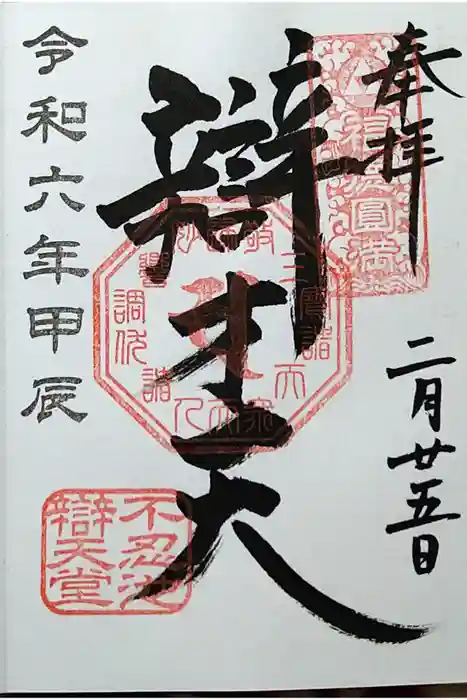 奉拝
圓満
二月廿五日
辯才天
令和六年甲辰
不忍池
辯天堂